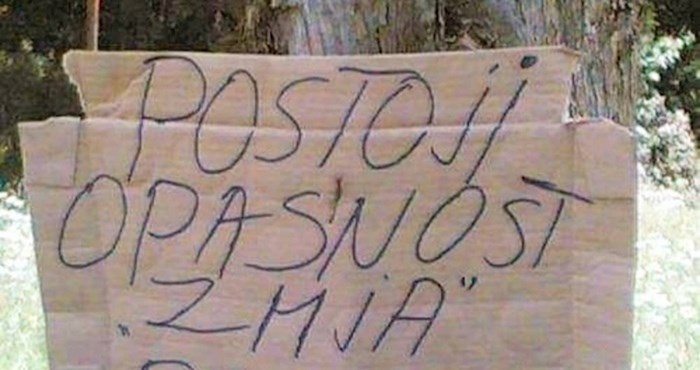 POSTOJi
OPASNOST
„ZMjA”